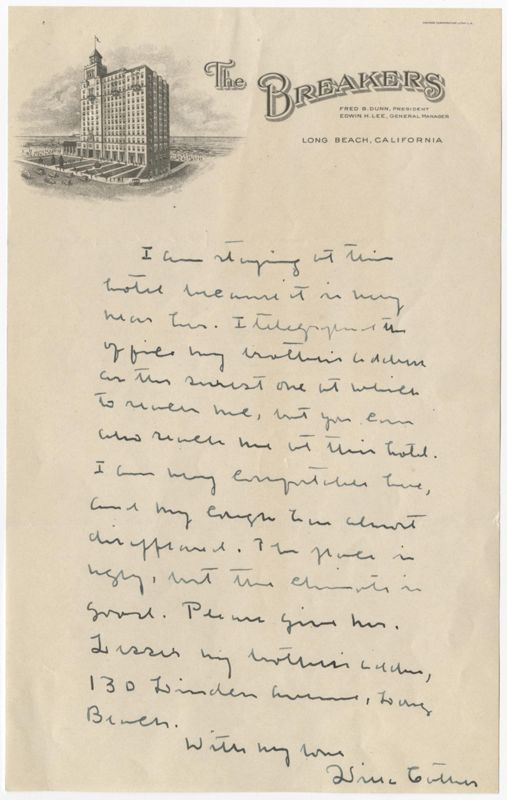 The BREAKERS
FRED B. DUNN, PRESIDENT
EDWIN H. LEE, GENERAL MANAGER
LONG BEACH, CALIFORNIA
I am staying at this
hotel because it is very
near her. I telegraphed the
office my brother's address
as the surest one at which
to reach me, but you can
also reach me at this hotel.
I am very comfortable here,
and my cough has almost
disappeared. The place is
ugly, but the climate is
good. Please give Mrs.
my brother's address,
130 Linden Avenue, Long
Beach.
With my love
Willa Cather